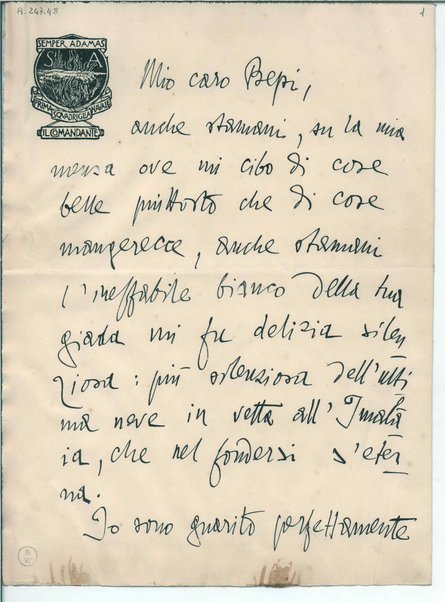 A. 247.48
1
SEMPER ADAMAS
S A
PRIMA SQVADRIGLIA NAVALE
IL COMANDANTE
Mio caro Bepi,
anche stamani, su la mia
mensa ove mi cibo di cose
belle piuttosto che di cose
mangerecce, anche stamani
l'ineffabile bianco della tua
giada mi fu delizia silen
ziosa: più silenziosa dell'ulti
ma neve in vetta all'Imala
ia, che nel fondersi s'eter
na.
Io sono guarito perfettamente